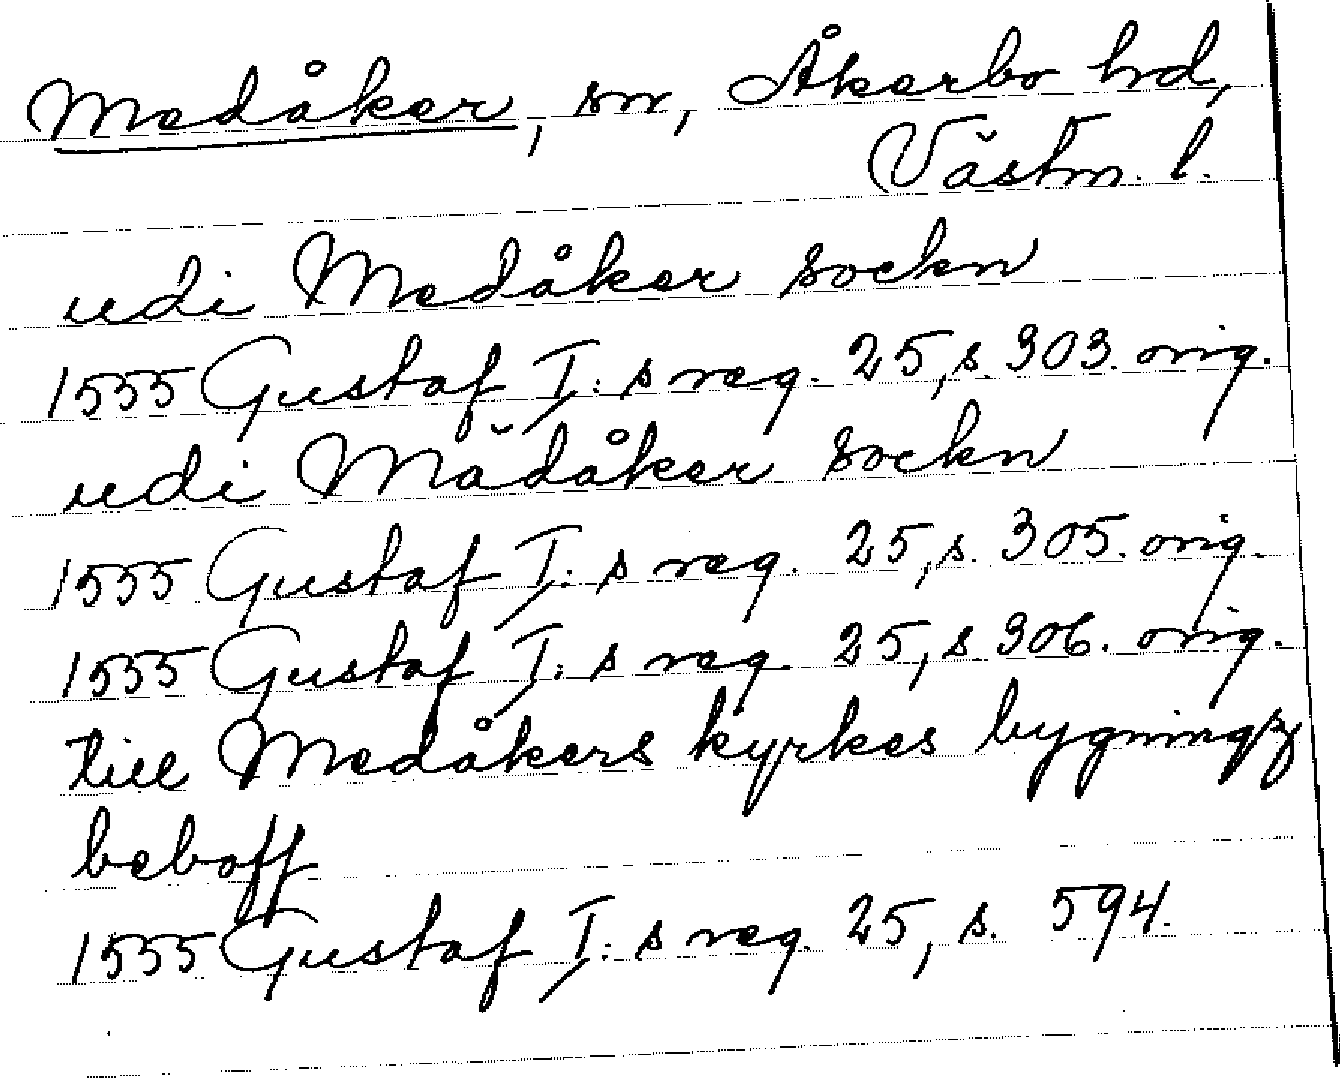 Medåker, sn, Åkerbo hd,
Västm. l.
udi Medåker sockn
1555 Gustaf I:s reg. 25, s. 303. orig.
udi Mädåker sockn
1555 Gustaf I:s reg. 25, s. 305. orig.
1555 Gustaf I:s reg. 25, s 306. orig.
till Medåkers kyrkes bygningz
behoff
1555 Gustaf I:s reg. 25, s. 594.